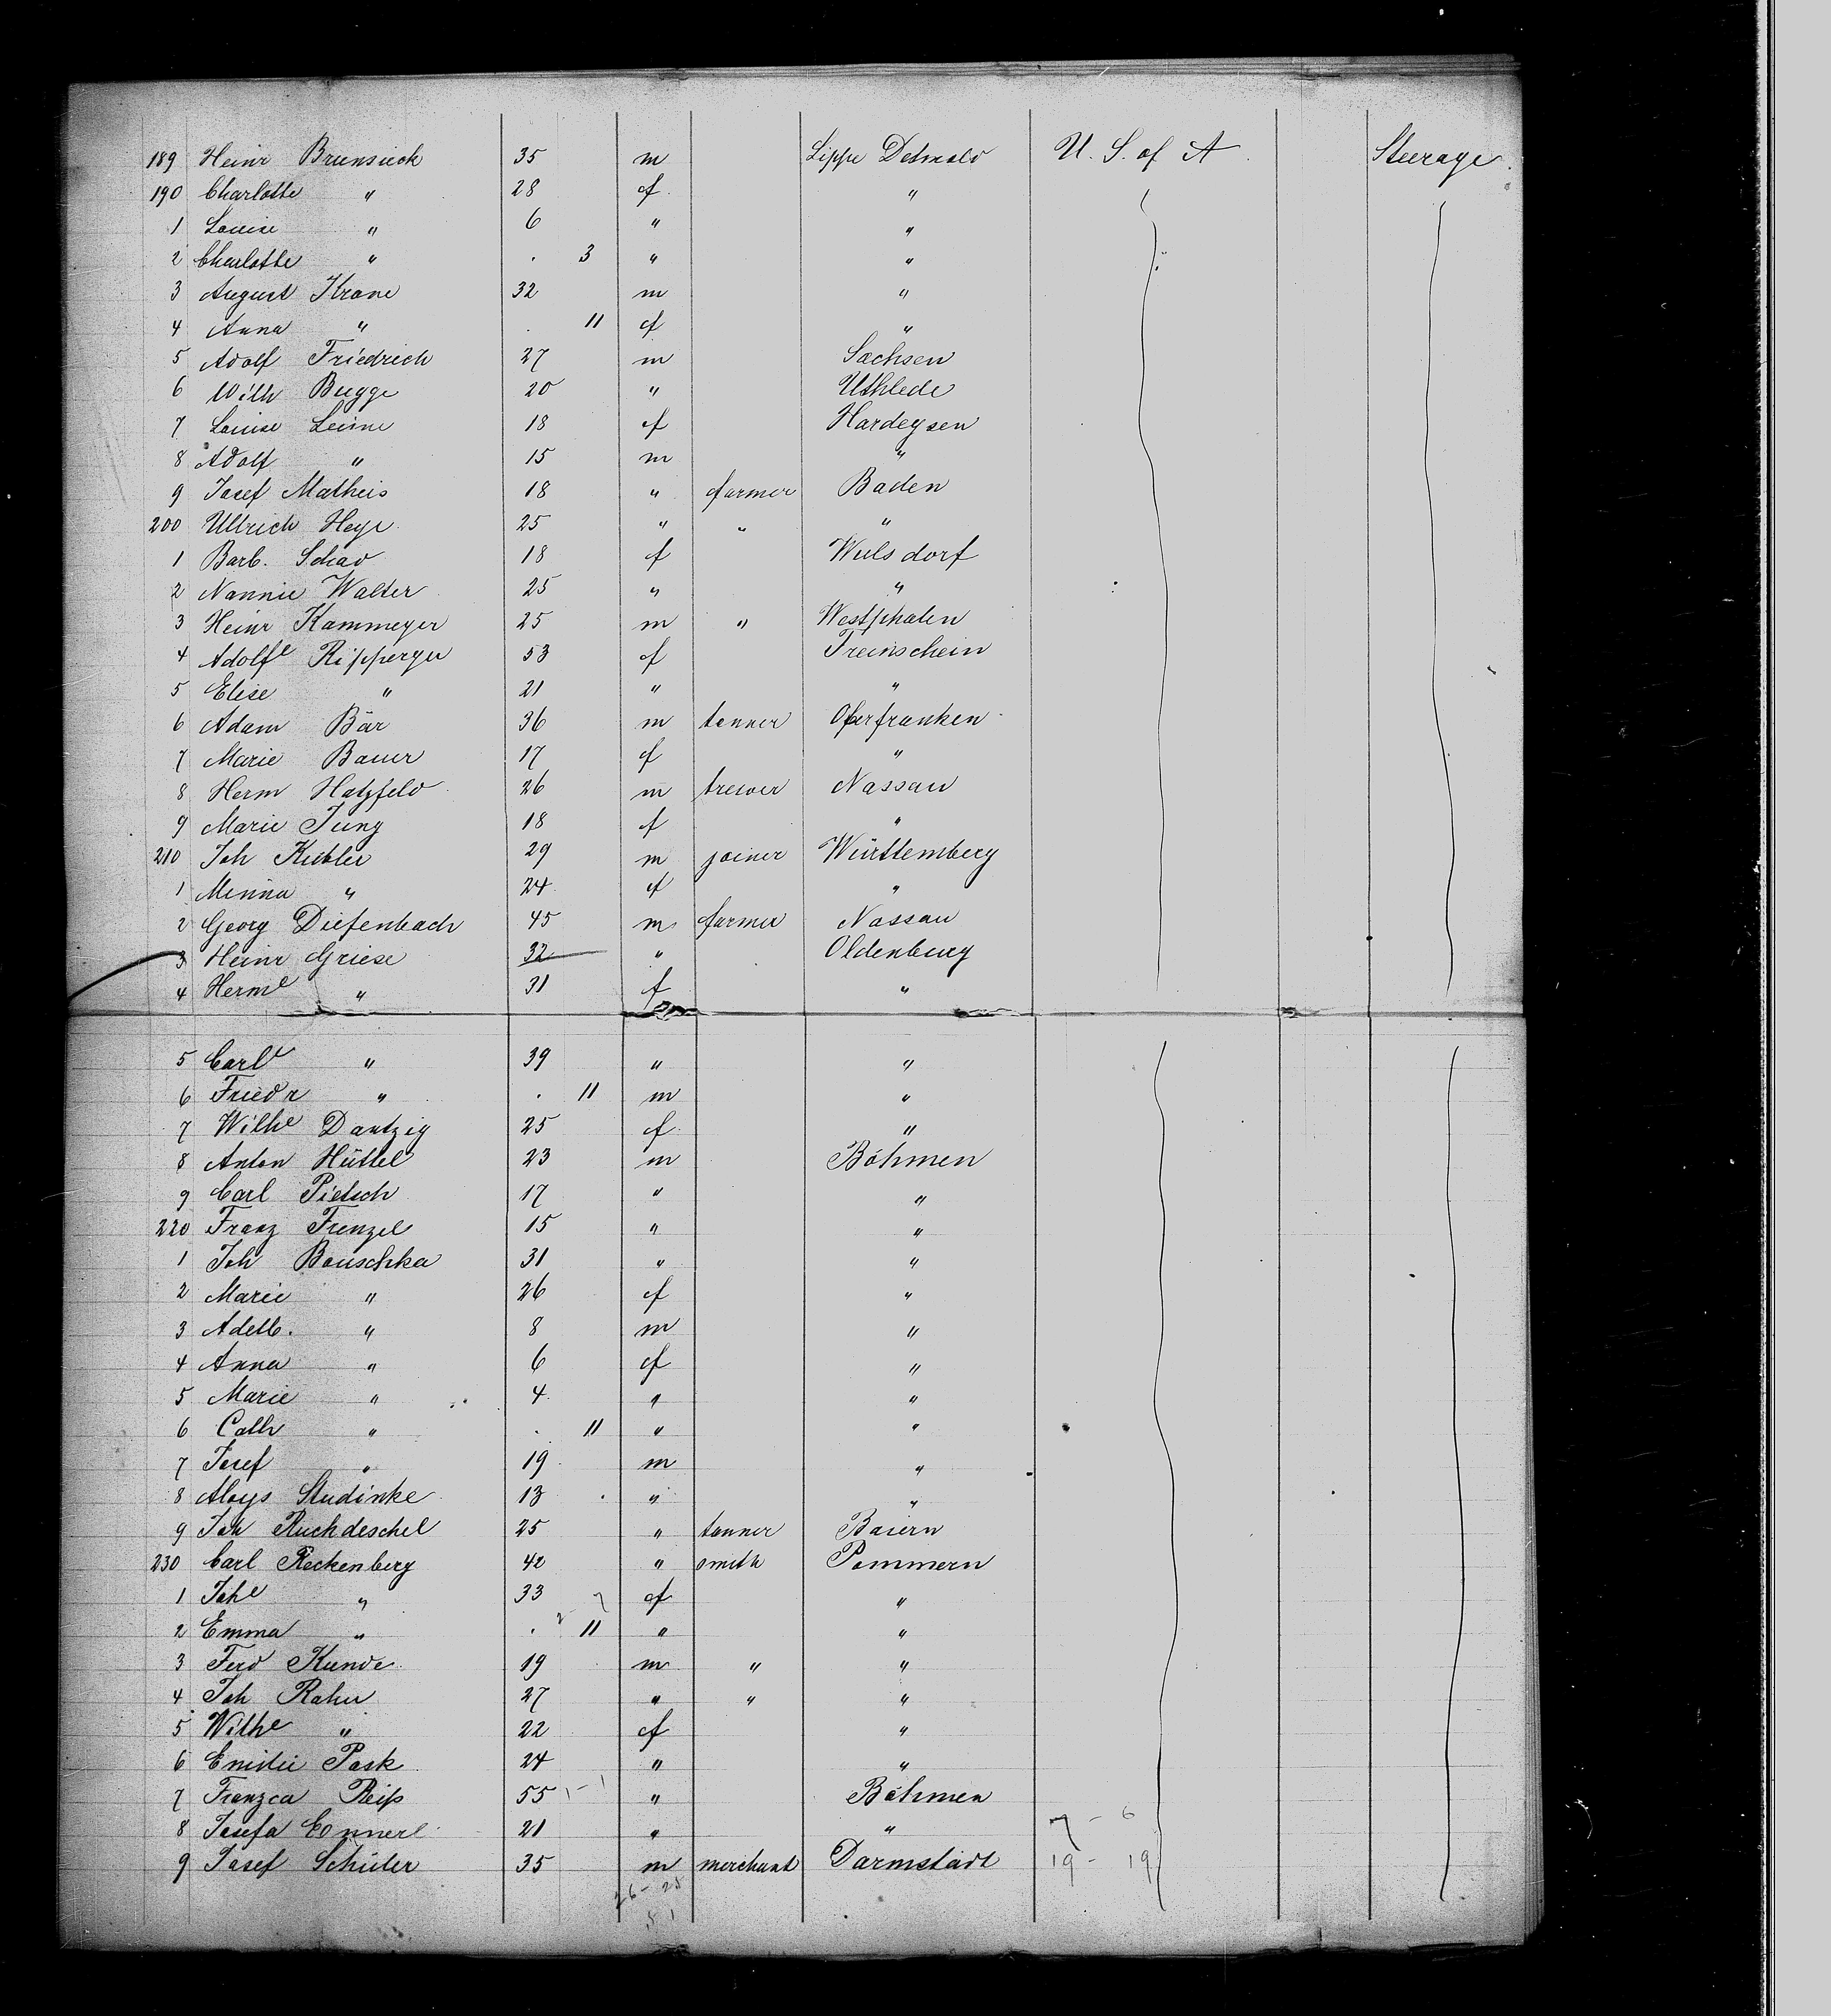 189 Heinr Brunsieck 35 m Lippe Detmold U. S. of A Steerage
190 Charlotte " 28 f "
1 Louise " 6 " "
2 Charlotte " . 3 " "
3 August Krone 32 m "
4 Anna " . 11 f "
5 Adolf Friedrich 27 m Sachsen
6 Wilh Bugge 20 " Uthlede
7 Louise Leime 18 f Hardegsen
8 Adolf " 15 m "
9 Josef Matheis 18 " farmer Baden
200 Ullrich Heye 25 " " "
1 Barb. Schad 18 f Wulsdorf
2 Nannie Walter 25 " "
3 Heinr Kammeyer 25 m " Westphalen
4 Adolfe Ripperger 53 f Treinschein
5 Elise " 21 " "
6 Adam Bär 36 m tanner Oberfranken
7 Marie Bauer 17 f "
8 Herm Hatzfeld 26 m brewer Nassau
9 Marie Jung 18 f "
210 Joh Kübler 29 m joiner Württemberg
1 Minna " 24 f "
2 Georg Diefenbach 45 m farmer Nassau
3 Heinr Griese 32 " Oldenburg
4 Herme " 31 f "
5 Carle " 39 " "
6 Friedr " . 11 m "
7 Wilhe Dantzig 25 f "
8 Anton Hüttel 23 m Böhmen
9 Carl Pietsch 17 " "
220 Franz Frenzel 15 " "
1 Joh Bouschka 31 " "
2 Marie " 26 f "
3 Adelb. " 8 m "
4 Anna " 6 f "
5 Marie " 4 " "
6 Cath " . 11 " "
7 Josef " 19 m "
8 Aloys Studinke 13 " "
9 Joh Ruckdeschel 25 " tanner Baiern
230 Carl Reckenberg 42 " smith Pommern
1 Johe " 33 f "
2 Emma " . 11 " "
3 Ferd Kunde 19 m " "
4 Joh Rahn 27 " " "
5 Wilhe " 22 f "
6 Emilie Pask 24 " "
7 Franzca Reiß 55 1 - 1 " Böhmen
8 Josefa 21 " " 7 - 6
9 Josef Schüler 35 m merchant Darmstadt 19 - 19
26 - 25